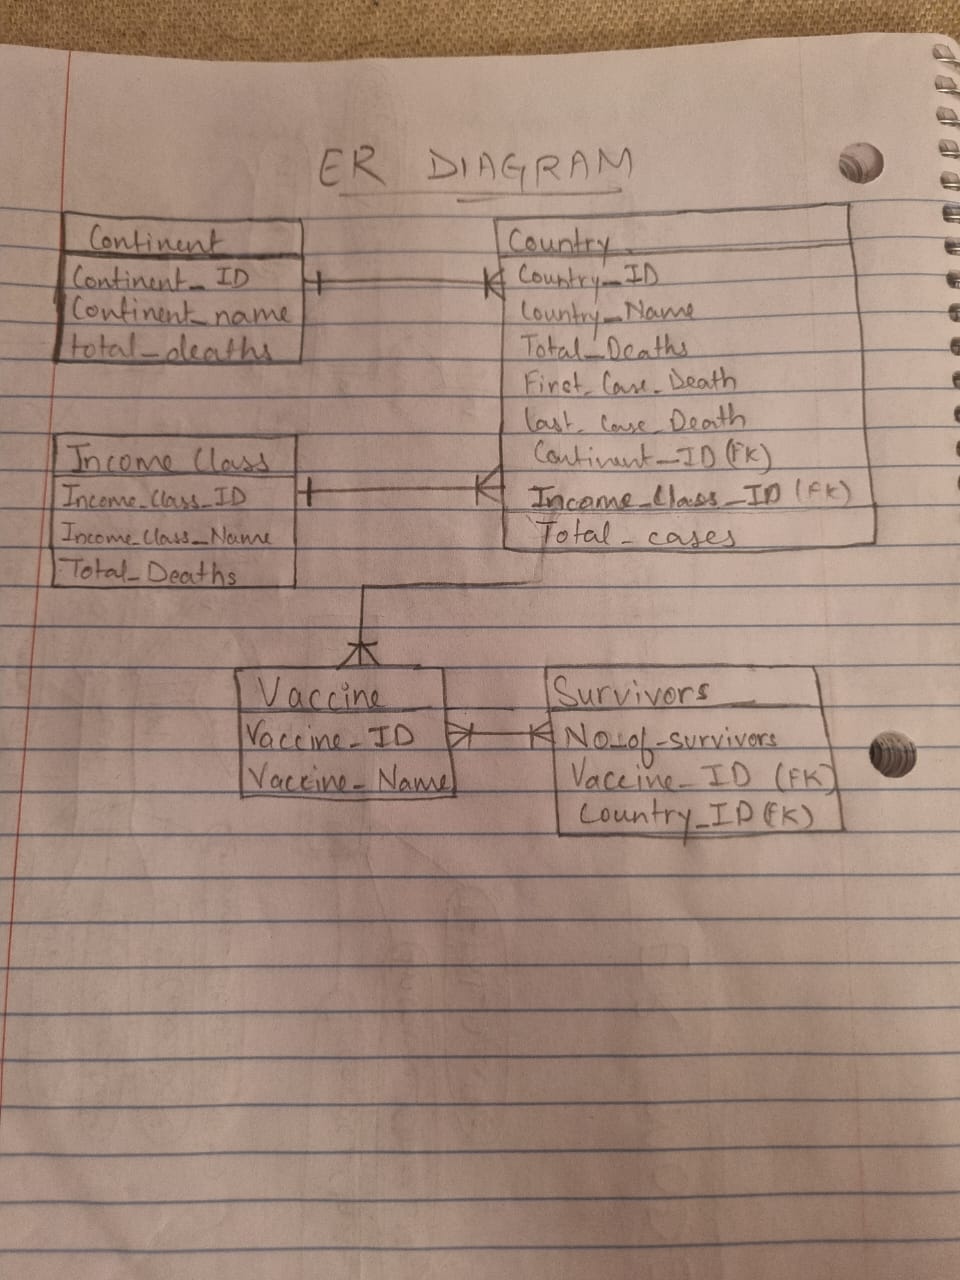 ER DIAGRAM
Continent
Continent_ID
Continent_name
total_deaths
Country
Country_ID
Country_Name
Total_Deaths
First_Case_Death
Last_Case_Death
Continent_ID (FK)
Income_Class_ID (FK)
Total_cases
Income Class
Income_Class_ID
Income_Class_Name
Total_Deaths
Vaccine
Vaccine_ID
Vaccine_Name
Survivors
No_of_survivors
Vaccine_ID (FK)
Country_ID (FK)